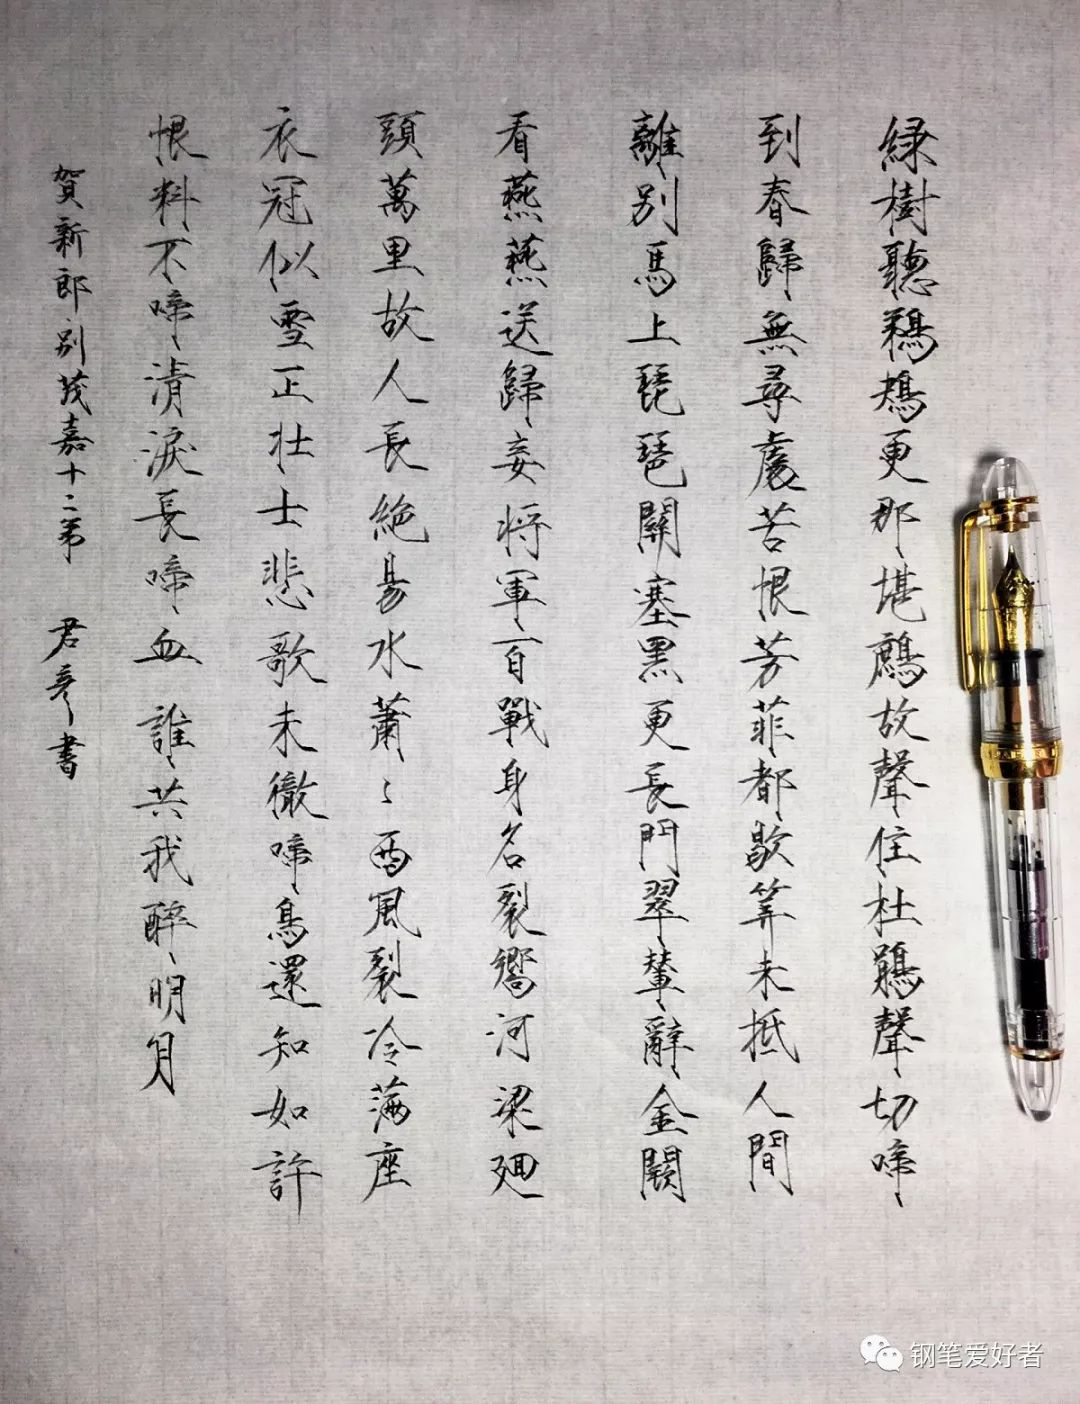 緑樹聽鵜鴂更那堪鷓鴣聲住杜鵑聲切啼
到春歸無尋處苦恨芳菲都歇算未抵人間
離別馬上琵琶關塞黑更長門翠輦辭金闕
看燕燕送歸妾將軍百戰身名裂嚮河梁廻
頭萬里故人長絶易水蕭〻西風裂冷滿座
衣冠似雪正壯士悲歌未徹啼鳥還知如許
恨料不啼清淚長啼血誰共我醉明月
賀新郎别茂嘉十二弟 君彦書
钢笔爱好者